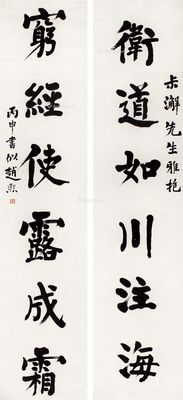 衛道如川注海
卡澥先生雅艳
窮經使露成霜
丙申書似趙熙